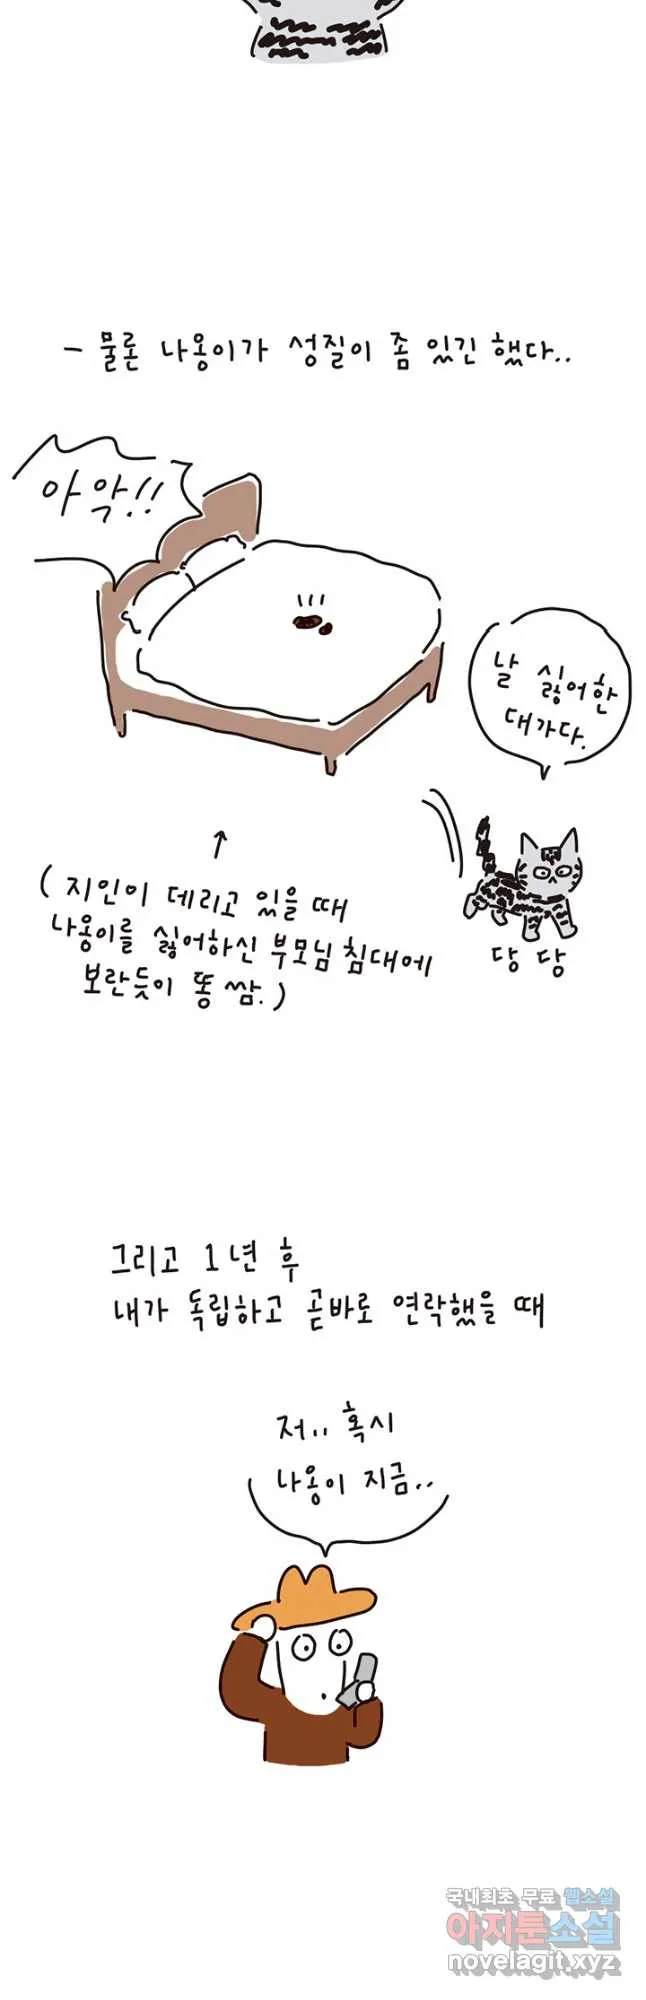 - 물론 나옹이가 성질이 좀 있긴 했다..
아악!!
날 싫어한
대가다.
당당
↑
(지인이 데리고 있을 때
나옹이를 싫어하신 부모님 침대에
보란듯이 똥 쌈.)
그리고 1년 후
내가 독립하고 곧바로 연락했을 때
저.. 혹시
나옹이 지금..
국내최초 무료 웹소설
아지툰소설
novelagit.xyz